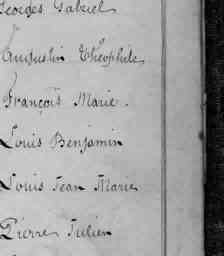 Georges Gabriel
Augustin Théophile
François Marie.
Louis Benjamin
Louis Jean Marie
Pierre Julien